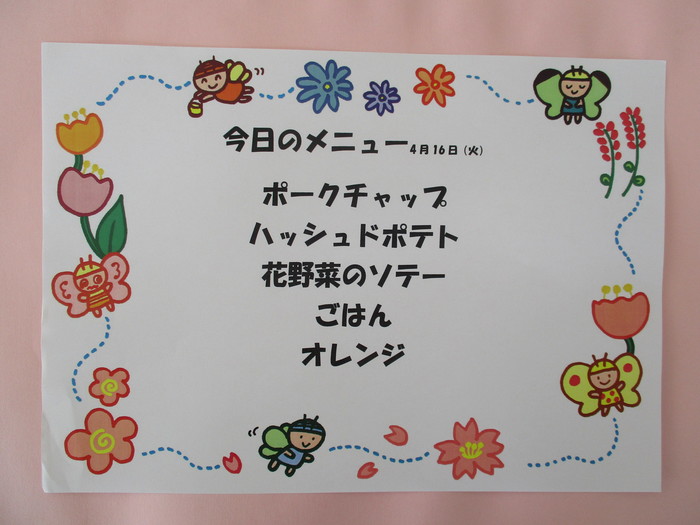 今日のメニュー4月16日(火)
ポークチャップ
ハッシュドポテト
花野菜のソテー
ごはん
オレンジ